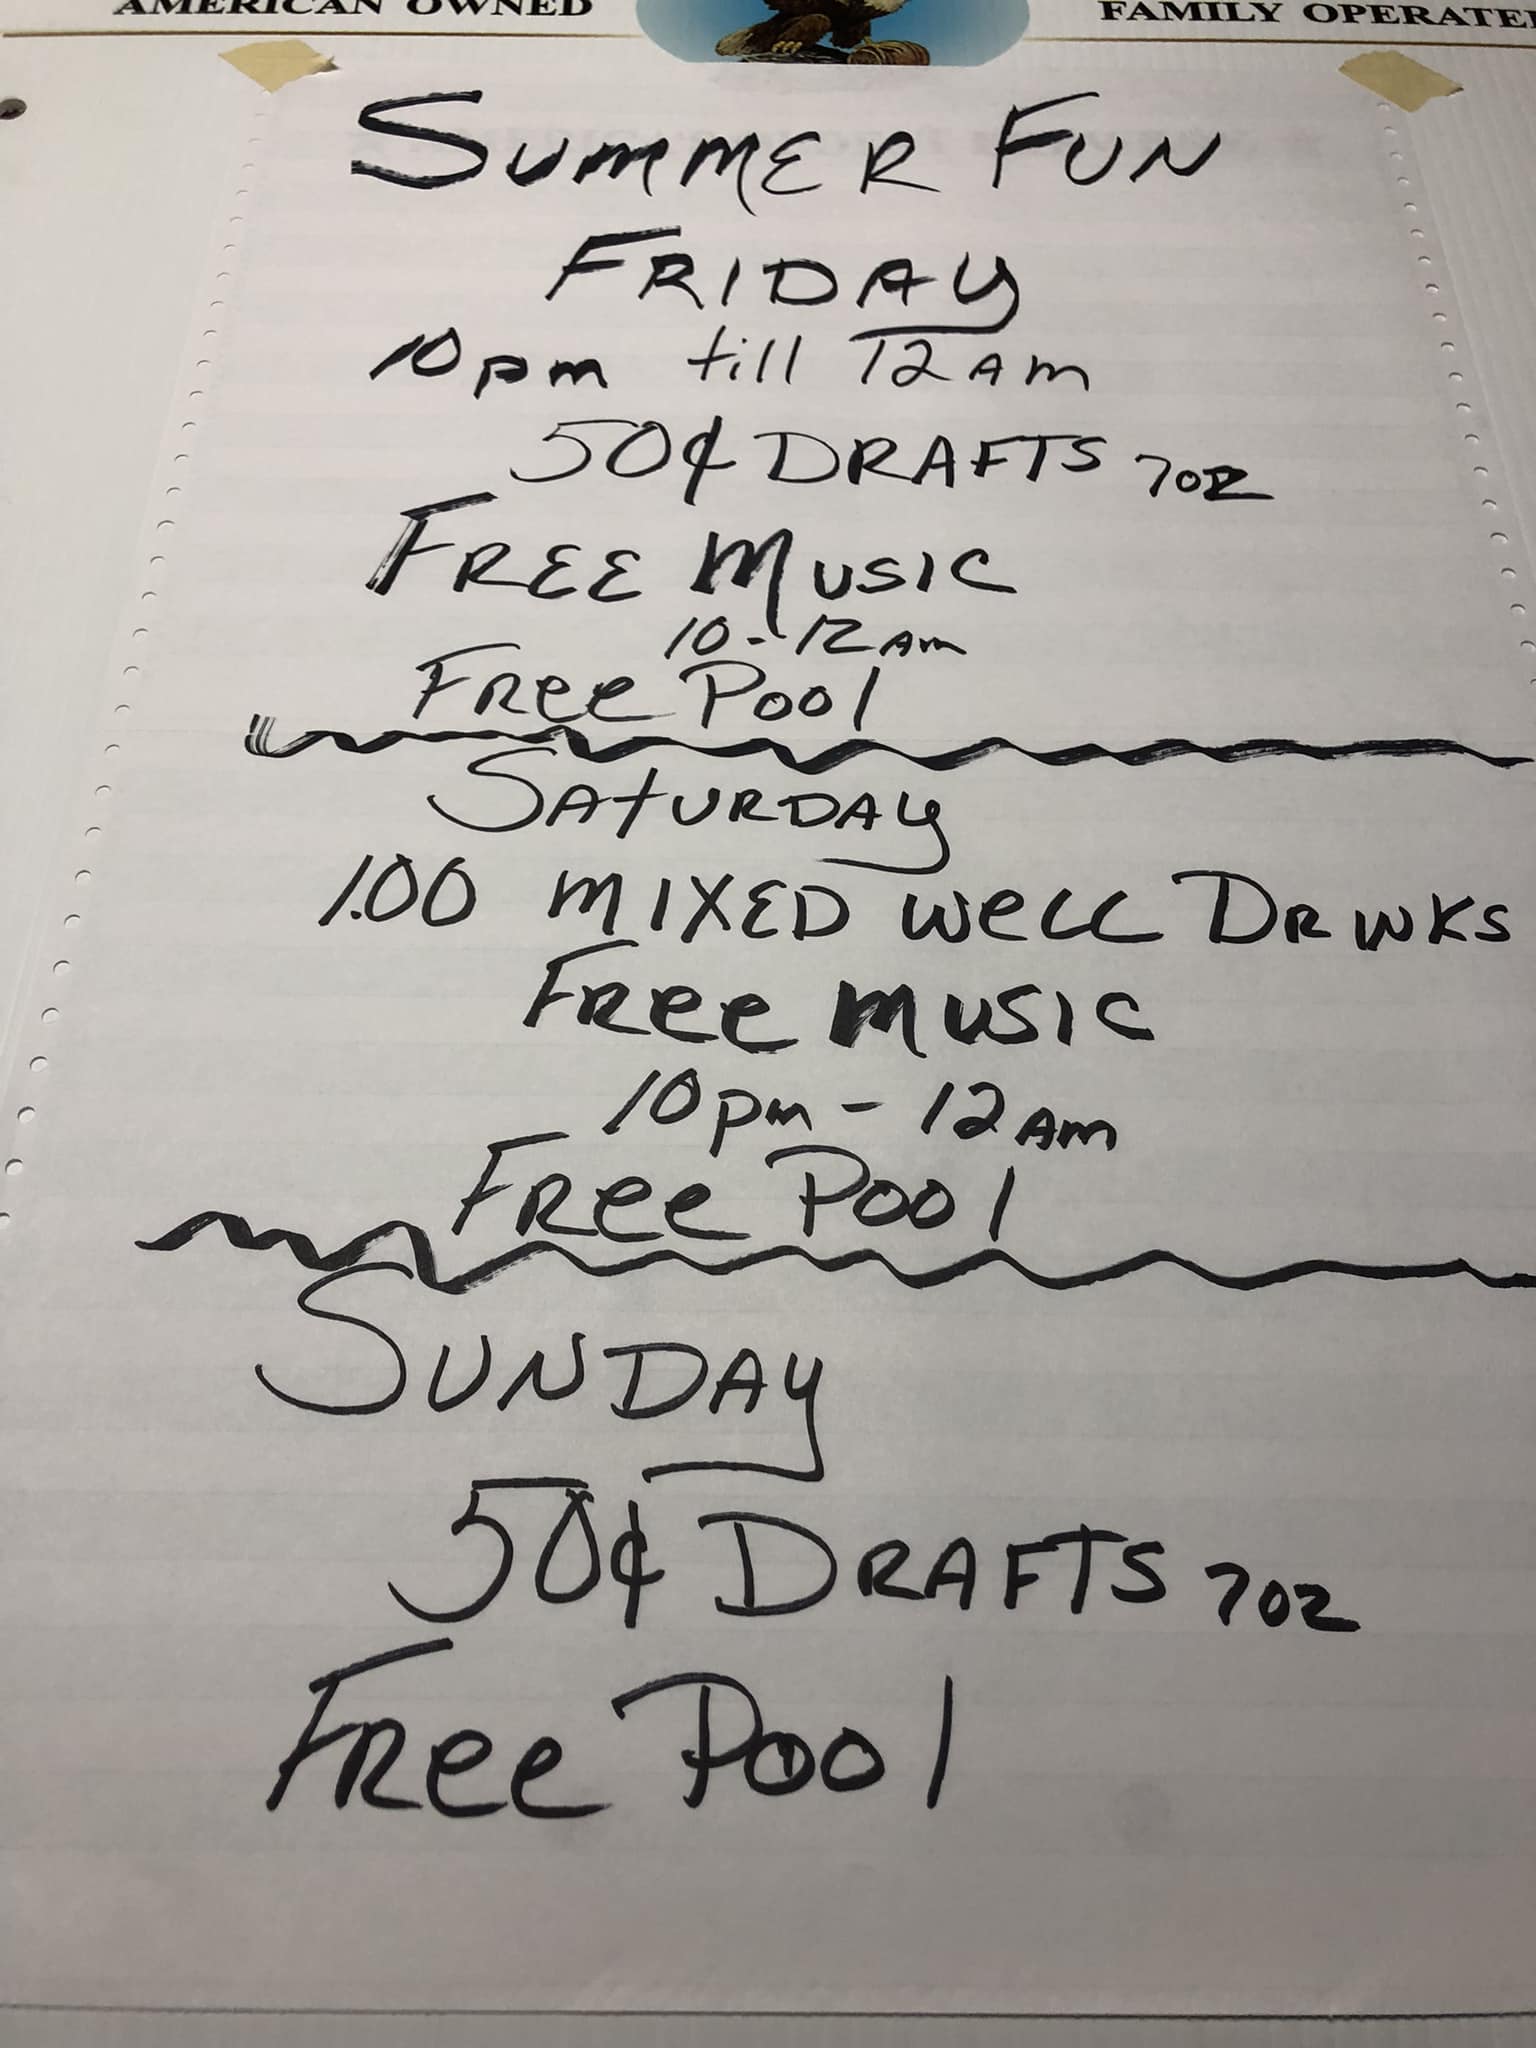 AMERICAN OWNED
FAMILY OPERATE
SUMMER FUN
FRIDAY
10pm till 12AM
50¢ DRAFTS 7oz
FREE MUSIC
10-12AM
FRee Pool
SATURDAY
1.00 MIXED Well DRINKS
FRee MUSIC
10pm - 12AM
FRee Pool
SUNDAY
50¢ DRAFTS 7oz
FRee Pool